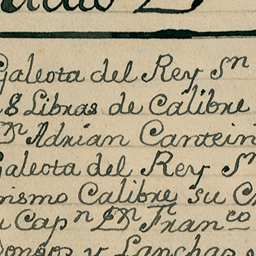 Galeota del Rey Sn
8 Libras de Calibre
Dn Adrian Cantein
Galeota del Rey Sn
mismo Calibre su C
Capn Dn Franco
y Lanchas